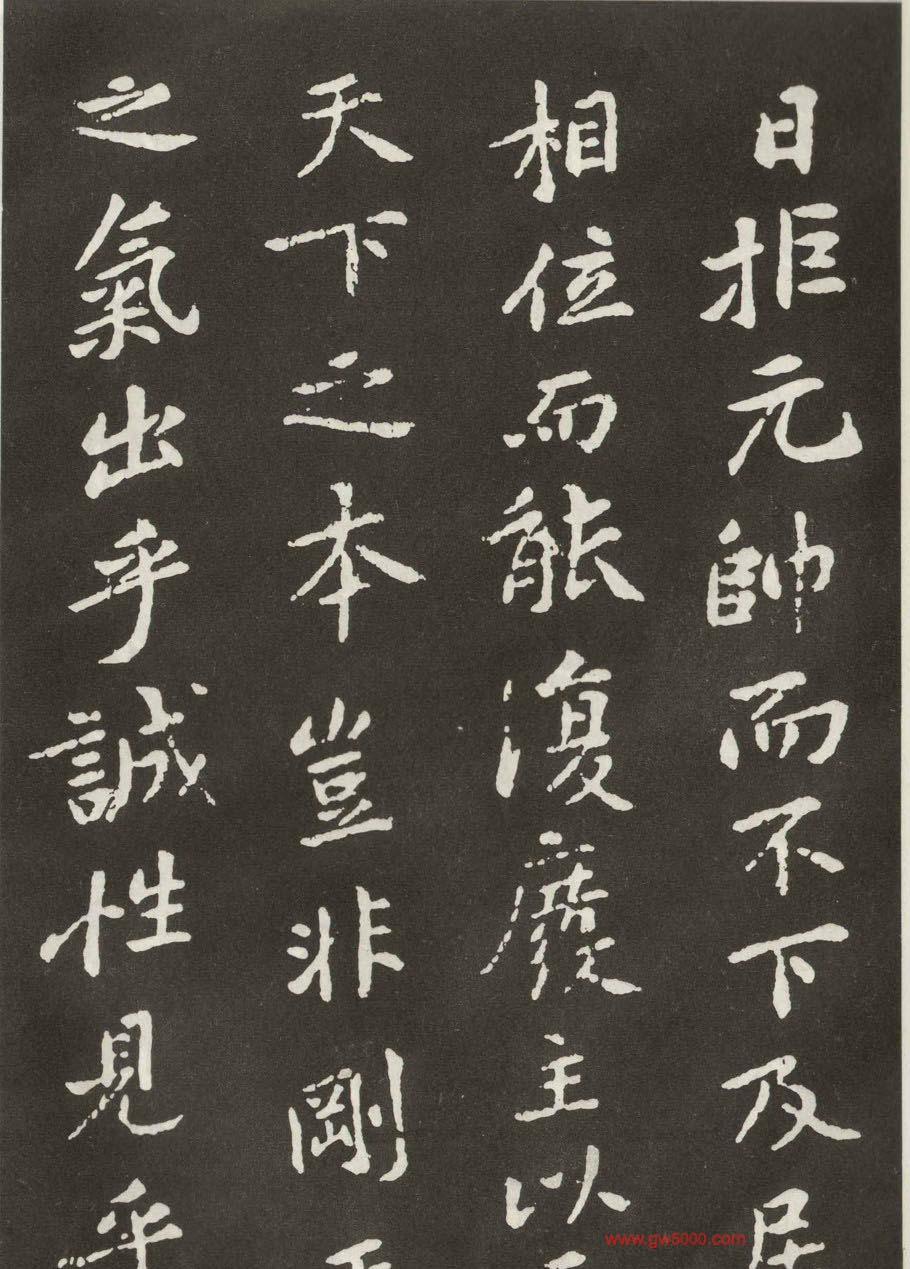 日拒元帥而不下及居
相位而能復廢主以
天下之本豈非剛正
之氣出乎誠性見乎
www.gw5000.com